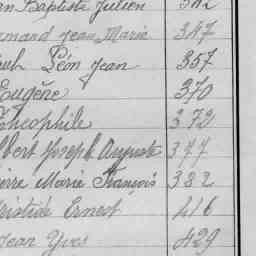 an Baptiste Julien 342
mand Jean Marie 347
ul Léon Jean 357
Eugène 370
Théophile 372
lbert Joseph Auguste 377
ierre Marie François 382
ristide Ernest 416
Jean Yves 429